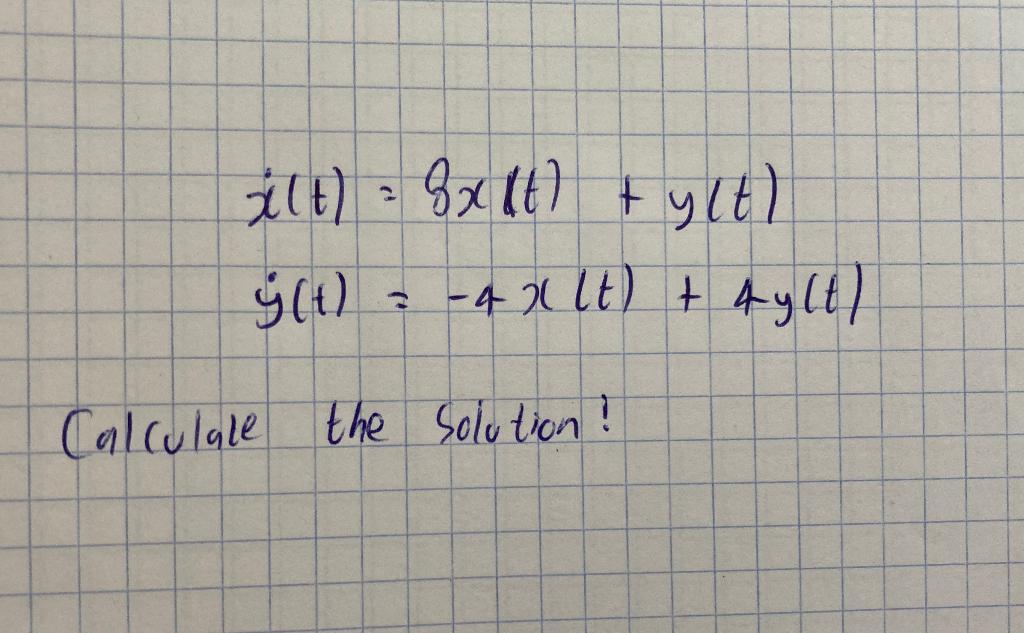 ẋ(t) = 8x(t) + y(t)
ẏ(t) = -4x(t) + 4y(t)
Calculate the solution!